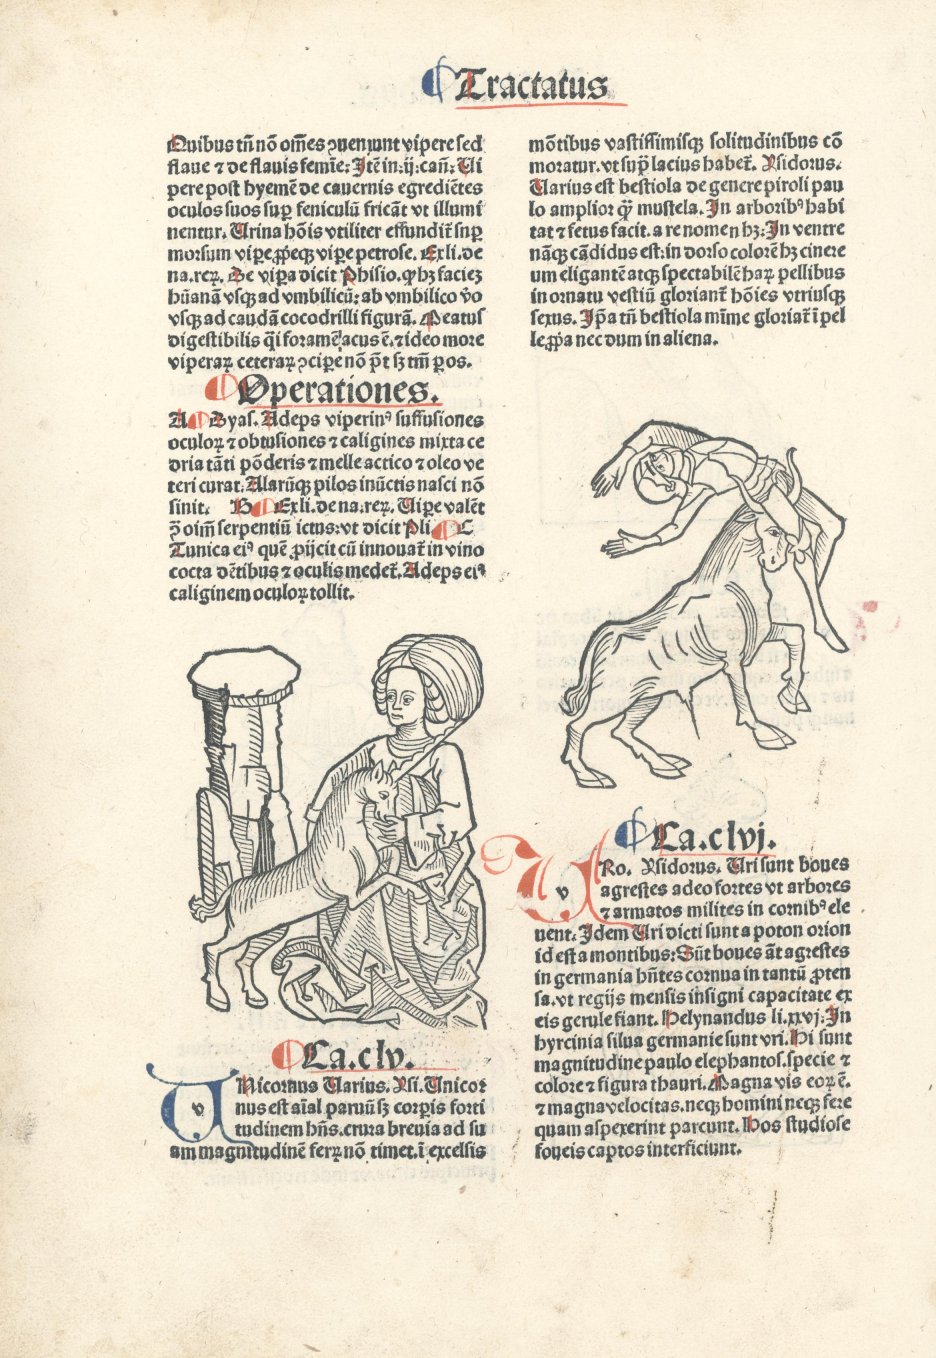 ¶ Tractatus
Quibus tñ nõ oм̃es ꝯueniunt vipere sed
flaue ⁊ de flauis femĩe: Itẽ in.ij: cañ. Ui
pere post hyemẽ de cauernis egrediẽtes
oculos suos suꝑ feniculũ fricãt vt illumi
nentur. Urina hõis vtiliter effundit̃ suꝑ
morsum viꝑe ꝓpeqꝫ viꝑe petrose. Ex li. de
na. reꝝ. De viꝑa dicit Phisio. ꝙ hꝫ facieꝫ
hũanã vsqꝫ ad vmbilicũ: ab vmbilico ṽo
vsqꝫ ad caudã cocodrilli figurã. Meatus
digestibilis q̃i foramẽ acus ẽ. ⁊ ideo more
viperaꝝ ceteraꝝ ꝯciꝑe nõ p̃t sꝫ tm̃ ꝑos.
¶ Operationes.
A ¶ Dyas. Adeps viperinꝰ suffusiones
oculoꝝ ⁊ obtusiones ⁊ caligines mixta ce
dria tãti põderis ⁊ melle actico ⁊ oleo ve
teri curat. Alarũqꝫ pilos inũctis nasci nõ
sinit. B ¶ Ex li. de na. reꝝ. Uiꝑe valẽt
ↄ̃ oim̃ serpentiũ ictus: vt dicit Pli. ¶ C
Tunica eiꝰ quẽ ꝓijcit cũ innouat̃ in vino
cocta dẽtibus ⁊ oculis medet̃. Adeps eiꝰ
caliginem oculoꝝ tollit.
¶ Ca. clv.
v UNicornus Uarius. Ysi. Unicor
nus est aĩal paruũ sꝫ corꝑis forti
tudinem hñs. crura breuia ad su
am magnitudinẽ ferꝝ nõ timet. ĩ excelsis
mõtibus vastissimisqꝫ solitudinibus cõ
moratur. vt sup̃ lacius habet̃. Ysidorus.
Uarius est bestiola de genere piroli pau
lo amplior q̃ꝫ mustela. In arboribꝰ habi
tat ⁊ fetus facit. a re nomen hꝫ: In ventre
nãqꝫ cãdidus est: in dorso colorẽ hꝫ cinere
um eligantẽ atqꝫ spectabilẽ haꝝ pellibus
in ornatu vestiũ gloriant̃ hõies vtriusqꝫ
sexus. Ip̃a tñ bestiola mĩme gloriat̃ ĩ pel
le ꝓp̃a nec dum in aliena.
¶ Ca. clvj.
v URo. Ysidorus. Uri sunt boues
agrestes adeo fortes vt arbores
⁊ armatos milites in cornibꝰ ele
uent. Idem Uri dicti sunt a poton orion
id est a montibus: Sũt boues ãt agrestes
in germania hñtes cornua in tantũ ꝓten
sa. vt regijs mensis insigni capacitate ex
eis gerule fiant. Helynandus li. xxvj: In
hyrcinia silua germanie sunt vri. Hi sunt
magnitudine paulo elephantos. specie ⁊
colore ⁊ figura thauri. Magna vis eoꝝ ẽ.
⁊ magna velocitas. neqꝫ homini neqꝫ fere
quam aspexerint parcunt. Hos studiose
foueis captos interficiunt.